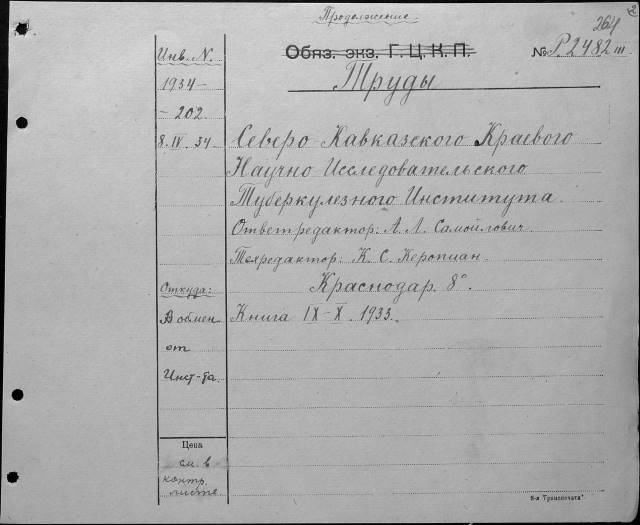 Продолжение.
264
2
Обяз. экз. Г. Ц. К. П.
№ Р2482 III
Труды
Инв. N.
1934-
- 202
8. IV. 34
Северо-Кавказского Краевого
Научно-Исследовательского
Туберкулезного Института.
Ответредактор: А. Л. Самойлович.
Техредактор: К. С. Керопиан.
Краснодар. 8°.
Откуда:
В обмен
от
Инст-та.
Книга IX-X. 1933.
Цена
см. в
контр.
листе
6-я Транспечать